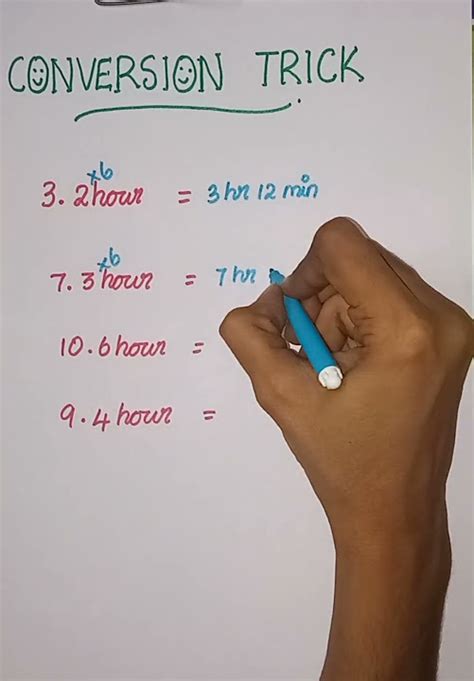 CONVERSION TRICK
x6
3.2hour = 3 hr 12 min
x6
7.3hour = 7 hr
10.6hour =
9.4hour =